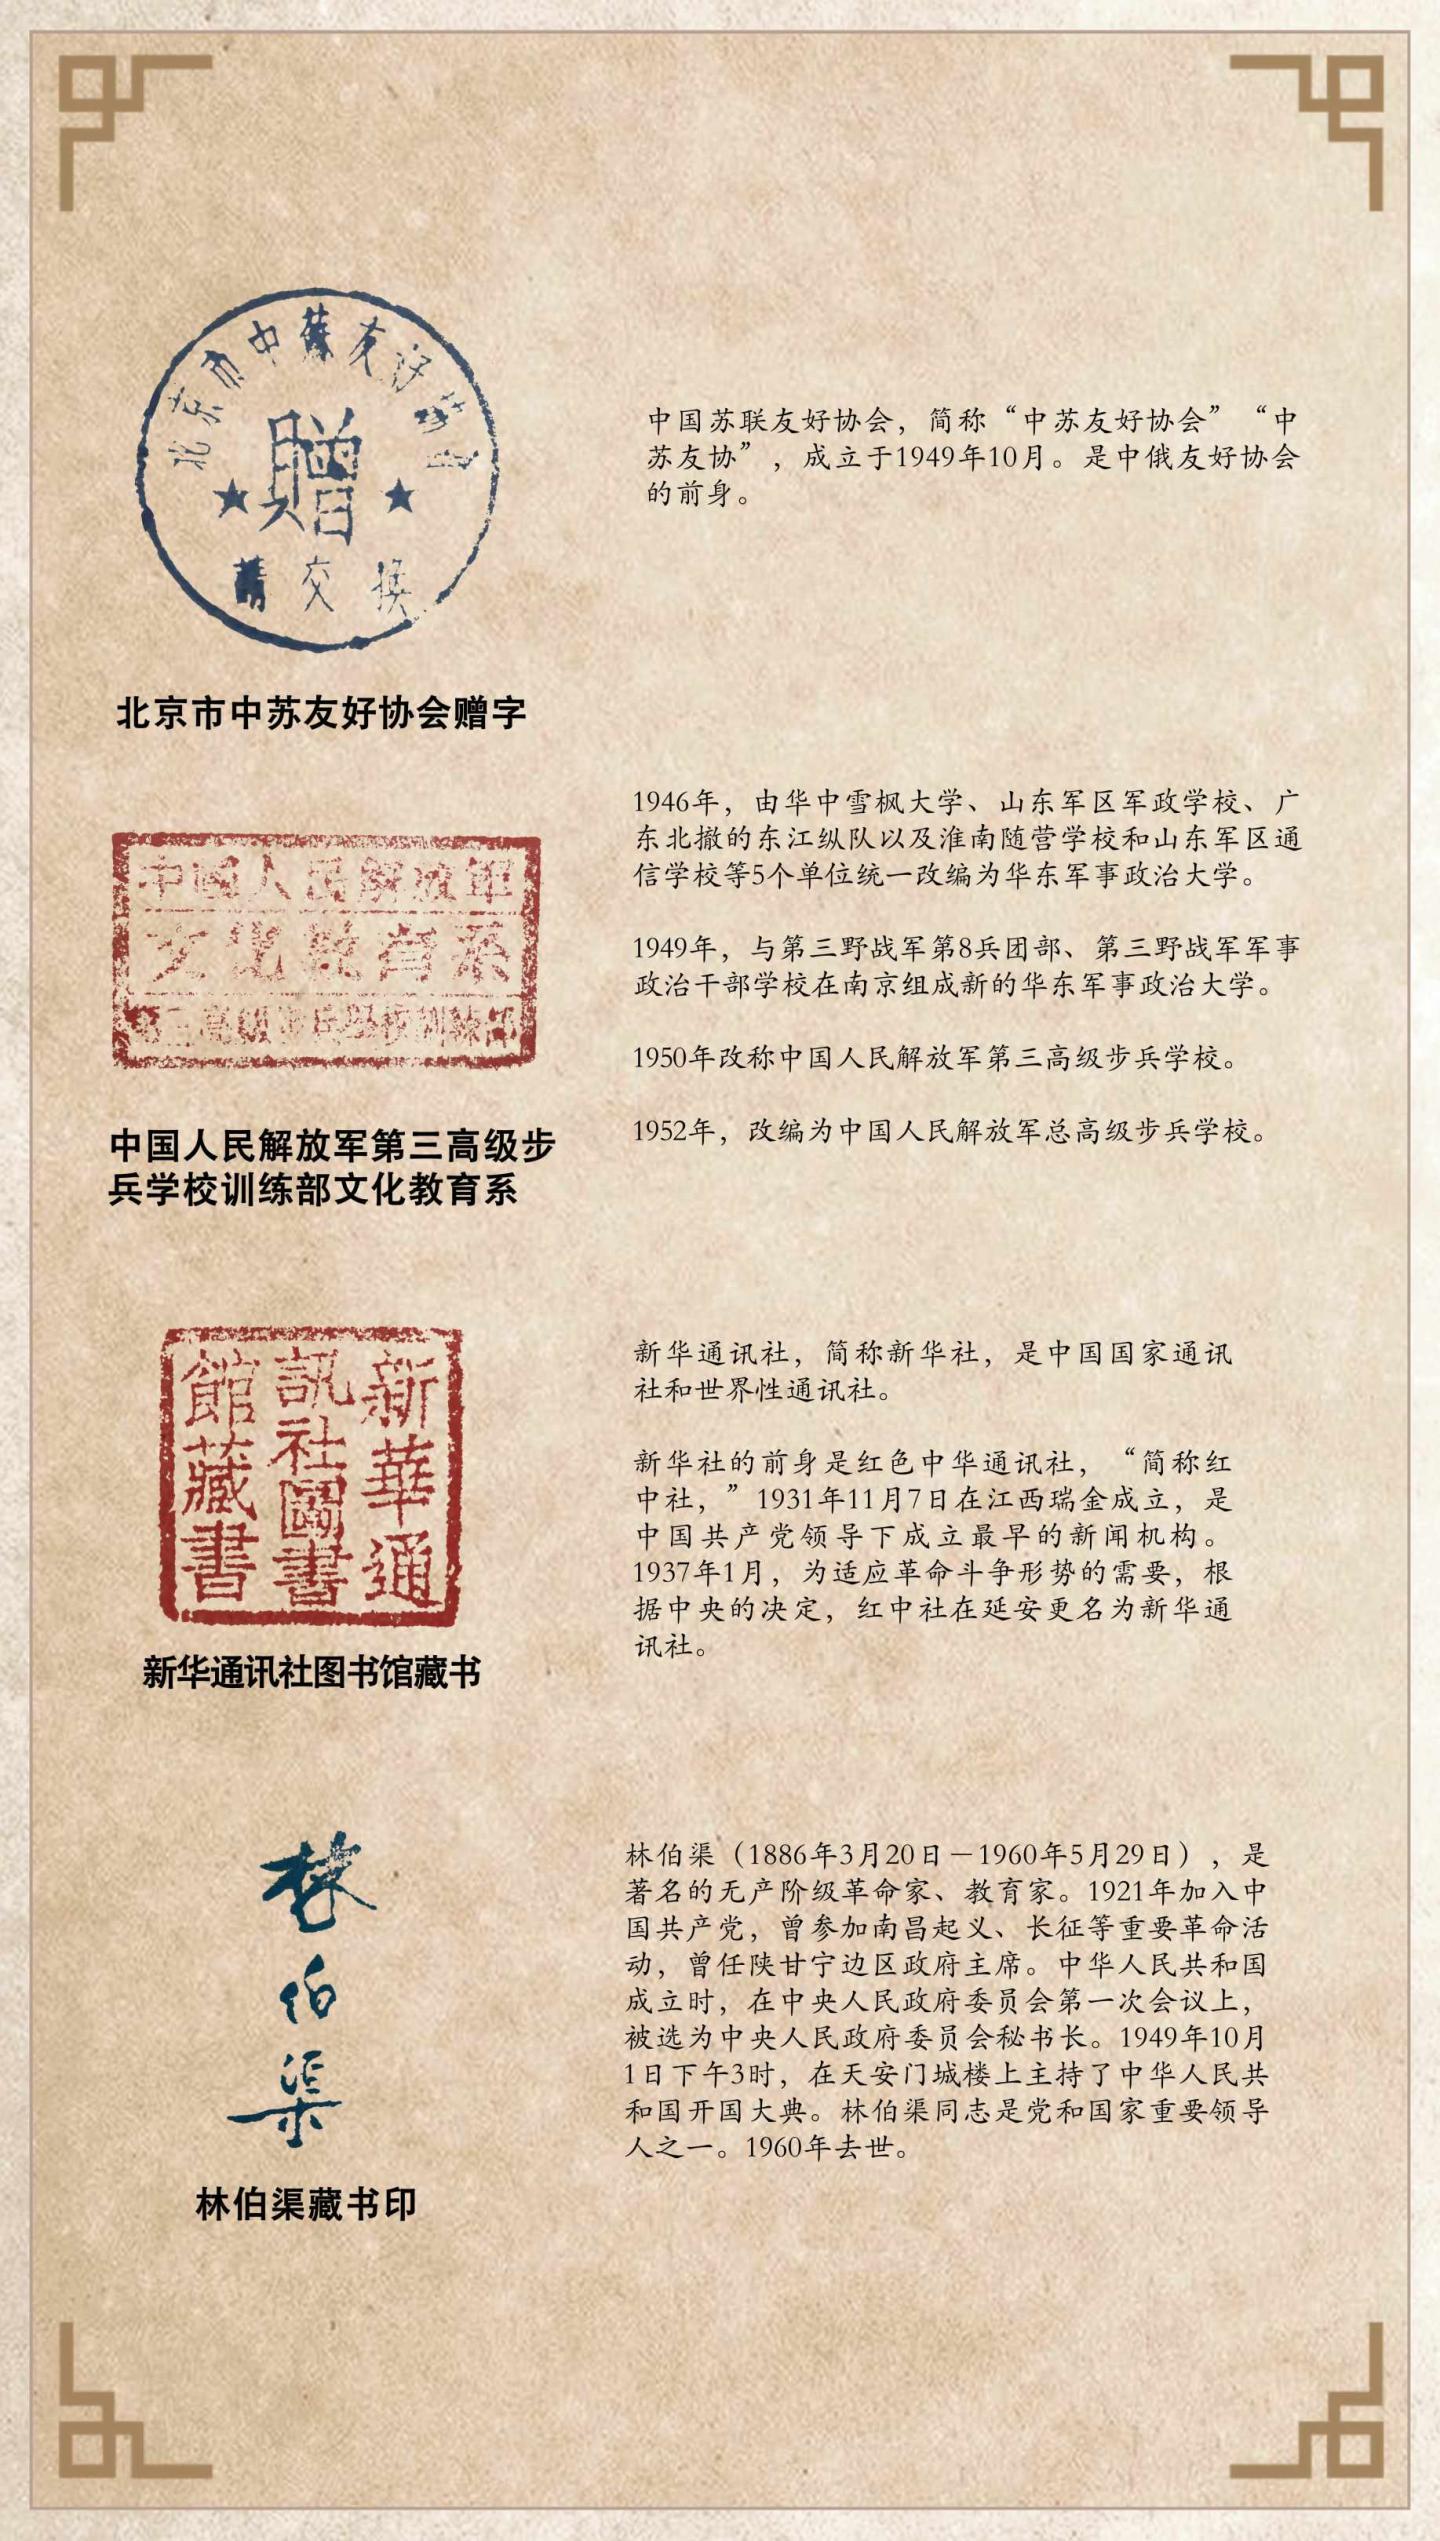 北京市中蘇友好
贈
請交换
北京市中苏友好协会赠字
中国苏联友好协会，简称“中苏友好协会”“中
苏友协”，成立于1949年10月。是中俄友好协会
的前身。
中國人民解放軍
文化教育系
中国人民解放军第三高级步
兵学校训练部文化教育系
1946年，由华中雪枫大学、山东军区军政学校、广
东北撤的东江纵队以及淮南随营学校和山东军区通
信学校等5个单位统一改编为华东军事政治大学。
1949年，与第三野战军第8兵团部、第三野战军军事
政治干部学校在南京组成新的华东军事政治大学。
1950年改称中国人民解放军第三高级步兵学校。
1952年，改编为中国人民解放军总高级步兵学校。
新華通
訊社圖書
館藏書
新华通讯社图书馆藏书
新华通讯社，简称新华社，是中国国家通讯
社和世界性通讯社。
新华社的前身是红色中华通讯社，“简称红
中社，”1931年11月7日在江西瑞金成立，是
中国共产党领导下成立最早的新闻机构。
1937年1月，为适应革命斗争形势的需要，根
据中央的决定，红中社在延安更名为新华通
讯社。
林伯渠
林伯渠藏书印
林伯渠（1886年3月20日－1960年5月29日），是
著名的无产阶级革命家、教育家。1921年加入中
国共产党，曾参加南昌起义、长征等重要革命活
动，曾任陕甘宁边区政府主席。中华人民共和国
成立时，在中央人民政府委员会第一次会议上，
被选为中央人民政府委员会秘书长。1949年10月
1日下午3时，在天安门城楼上主持了中华人民共
和国开国大典。林伯渠同志是党和国家重要领导
人之一。1960年去世。